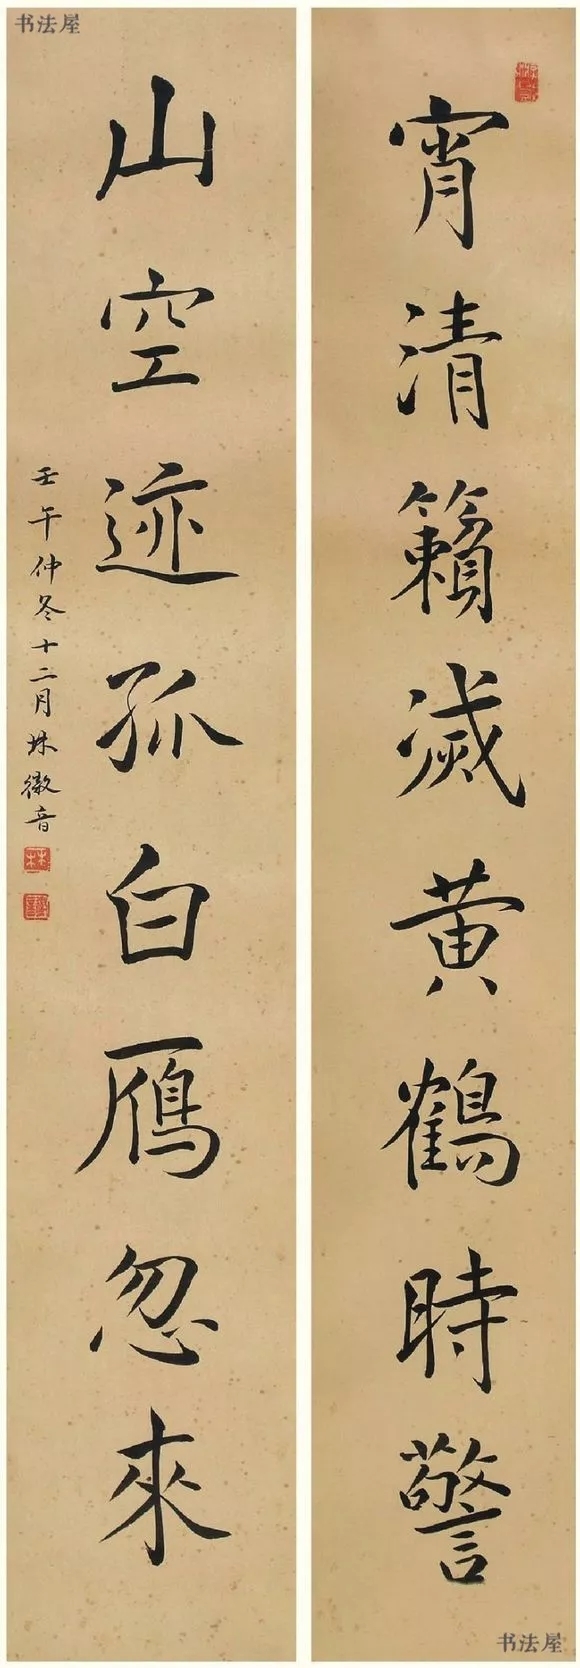 宵清籟滅黄鶴時警
山空迹孤白鴈忽來
壬午仲冬十二月林徽音
书法屋
书法屋